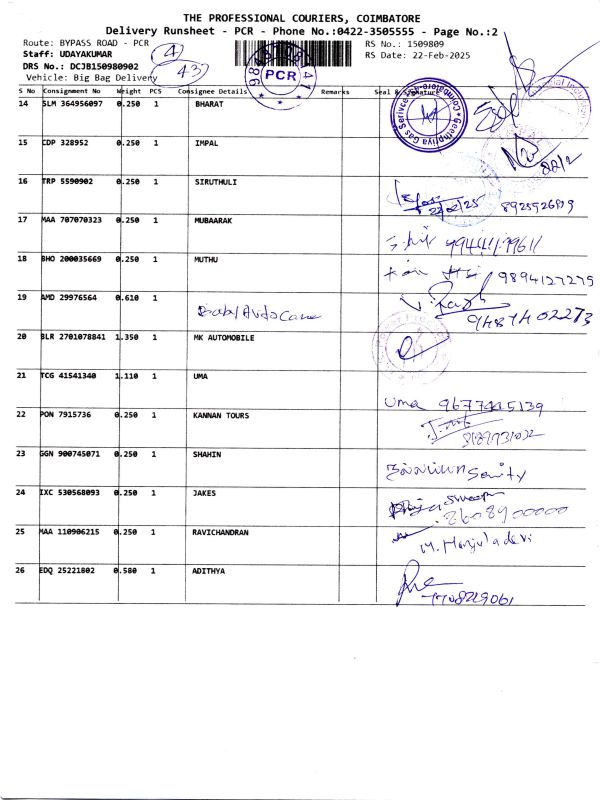 THE PROFESSIONAL COURIERS, COIMBATORE
Delivery Runsheet - PCR - Phone No.:0422-3505555 - Page No.:2
Route: BYPASS ROAD - PCR
RS No.: 1509809
Staff: UDAYAKUMAR
RS Date: 22-Feb-2025
DRS No.: DCJB150980902
Vehicle: Big Bag Delivery
4
43
PCR
S No Consignment No Weight PCS Consignee Details Remarks Seal & Signature
14 SLM 364956097 0.250 1 BHARAT
Geethpriya Gas Serivce
Coimbatore
15 CDP 328952 0.250 1 IMPAL
22/2
16 TRP 5590902 0.250 1 SIRUTHULI
22/02/25 8925926819
17 MAA 707070323 0.250 1 MUBAARAK
18 BHO 200035669 0.250 1 MUTHU
9894127275
19 AMD 29976564 0.610 1
Baby Auto Care
9487402273
20 BLR 2701078841 1.350 1 MK AUTOMOBILE
21 TCG 41541340 1.110 1 UMA
Uma 9677445139
22 PON 7915736 0.250 1 KANNAN TOURS
23 GGN 900745071 0.250 1 SHAHIN
24 IXC 530568093 0.250 1 JAKES
25 MAA 110906215 0.250 1 RAVICHANDRAN
M. Manjula devi
26 EDQ 25221802 0.580 1 ADITHYA
7708219061